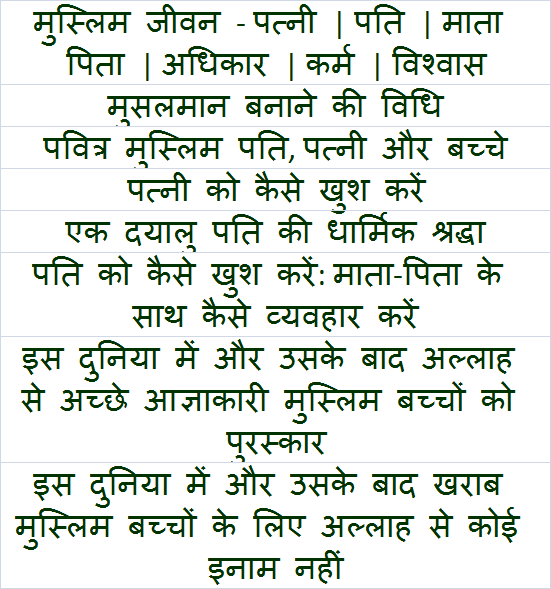 मुस्लिम जीवन - पत्नी | पति | माता
पिता | अधिकार | कर्म | विश्वास
मुसलमान बनाने की विधि
पवित्र मुस्लिम पति, पत्नी और बच्चे
पत्नी को कैसे खुश करें
एक दयालु पति की धार्मिक श्रद्धा
पति को कैसे खुश करें: माता-पिता के
साथ कैसे व्यवहार करें
इस दुनिया में और उसके बाद अल्लाह
से अच्छे आज्ञाकारी मुस्लिम बच्चों को
पुरस्कार
इस दुनिया में और उसके बाद खराब
मुस्लिम बच्चों के लिए अल्लाह से कोई
इनाम नहीं